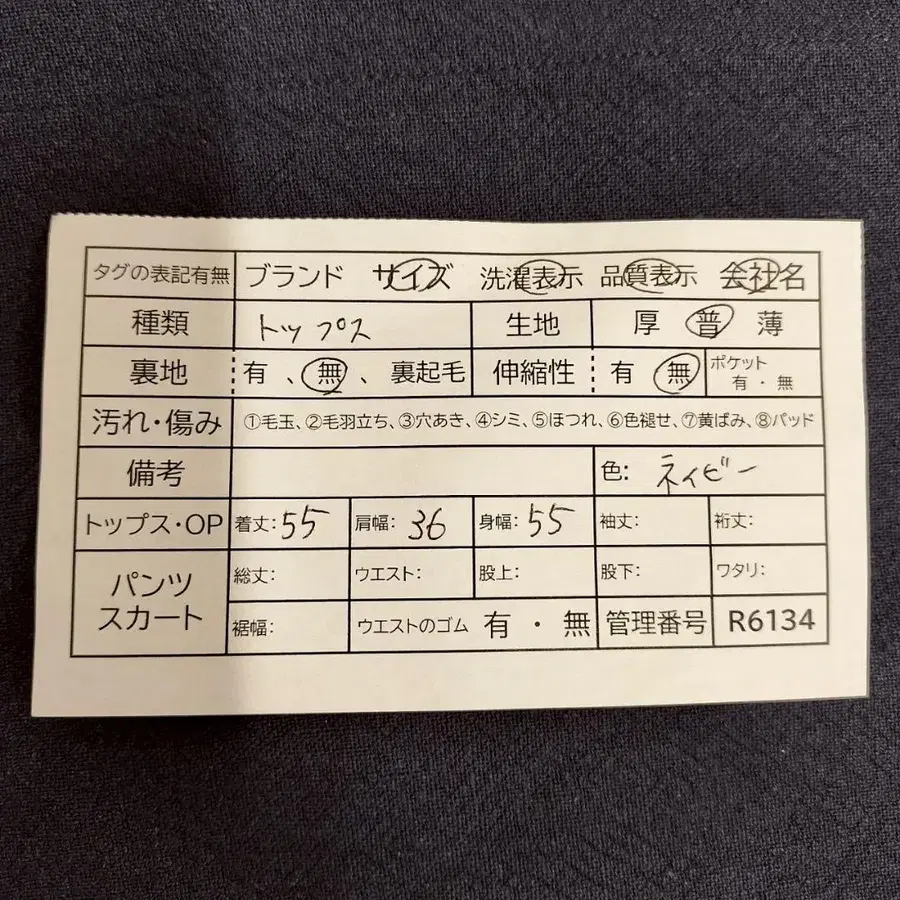 タグの表記有無 ブランド サイズ 洗濯表示 品質表示 会社名
種類 トップス 生地 厚 普 薄
裏地 有 、 無 、 裏起毛 伸縮性 有 無 ポケット 有・無
汚れ・傷み ①毛玉、②毛羽立ち、③穴あき、④シミ、⑤ほつれ、⑥色褪せ、⑦黄ばみ、⑧パッド
備考 色: ネイビー
トップス・OP 着丈: 55 肩幅: 36 身幅: 55 袖丈: 裄丈:
パンツ スカート 総丈: ウエスト: 股上: 股下: ワタリ:
裾幅: ウエストのゴム 有 ・ 無 管理番号 R6134